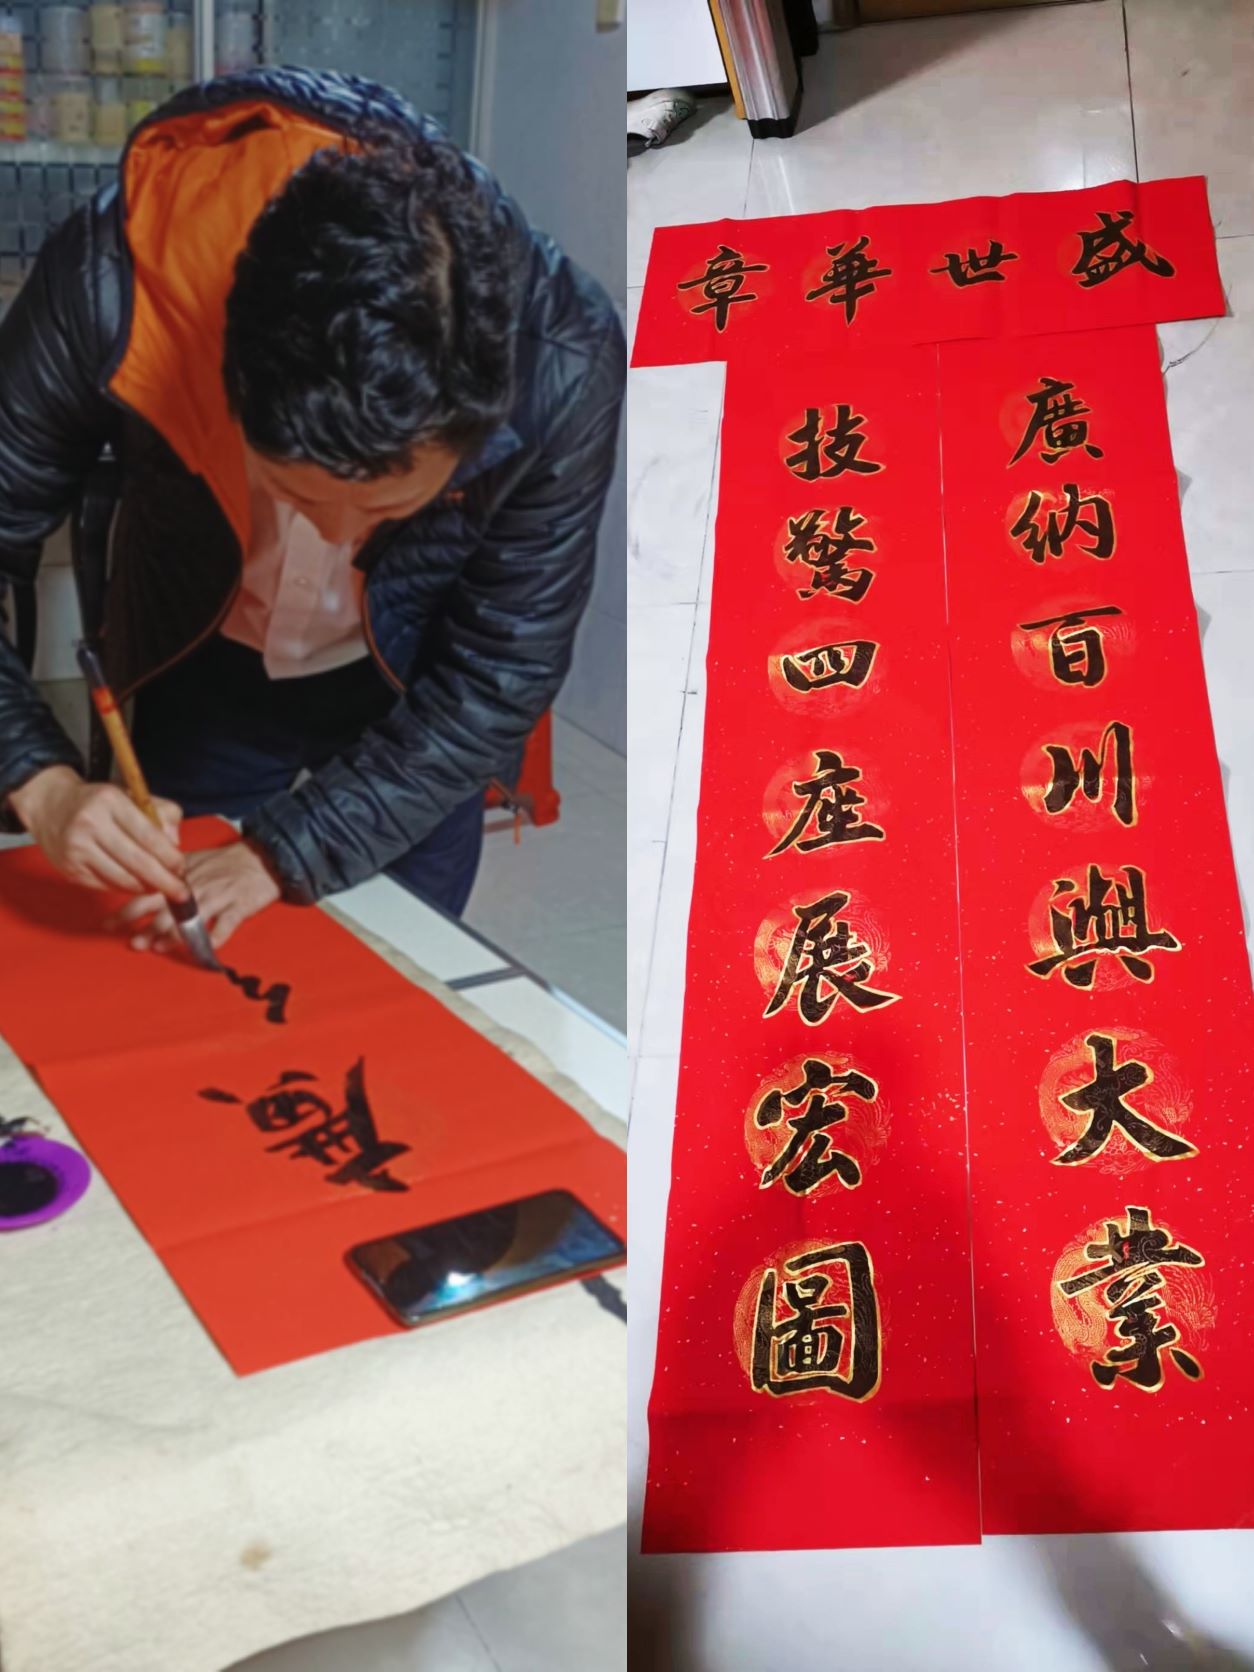 盛世華章
廣納百川興大業
技驚四座展宏圖